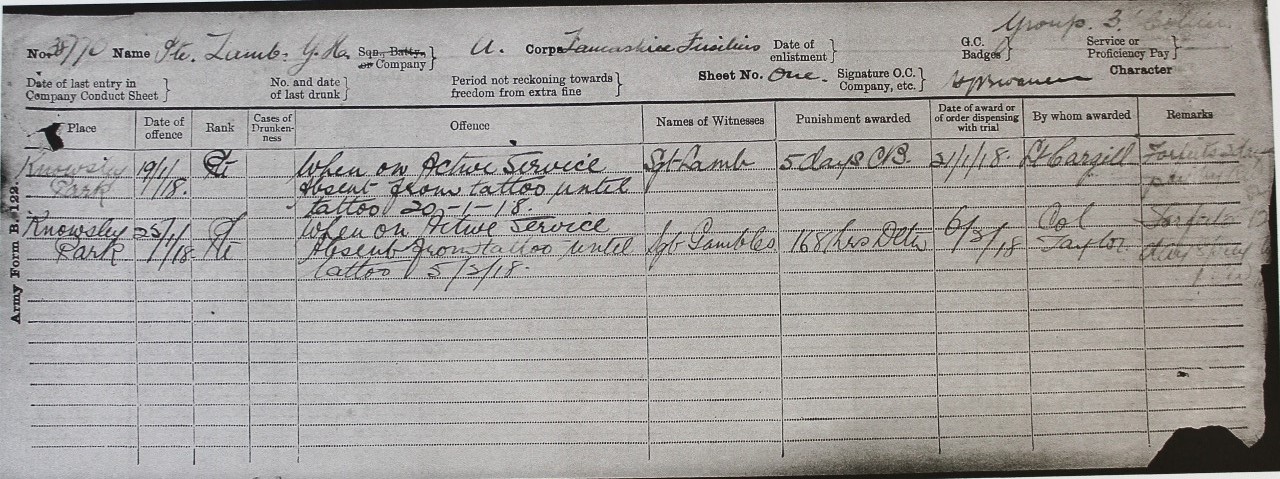 Group. 3
No. Name Pte. Lamb. Sqn., Batty., or Company} A. Corps Lancashire Fusiliers Date of enlistment} G.C. Badges} Service or Proficiency Pay}
Sheet No. One. Signature O.C. Company, etc.} Character
Date of last entry in Company Conduct Sheet} No. and date of last drunk} Period not reckoning towards freedom from extra fine}
Place Date of offence Rank Cases of Drunkenness Offence Names of Witnesses Punishment awarded Date of award or of order dispensing with trial By whom awarded Remarks
Knowsley 19/1/ Pte When on Active Service Sgt Lamb 5 days CB. 21/1/18. Cargill
Park 18. absent from tattoo until
tattoo 20-1-18.
Knowsley When on Active Service Col
Park /1/18. Pte Absent from tattoo until Sgt 168 hrs Detn 6/2/18 Taylor
tattoo 5/2/18.
Army Form B. 122.